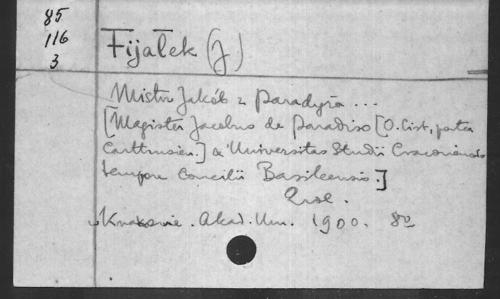 85
116
3
Fijałek (J)
Mistrz Jakób z Paradyża ...
[Magister Jacobus de Paradiso [O. Cist, postea
Carthusien.] & Universitas Studii Cracoviensis
tempore Concilii Basileensis.]
Krakowie. Akad. Um. 1900. 8o